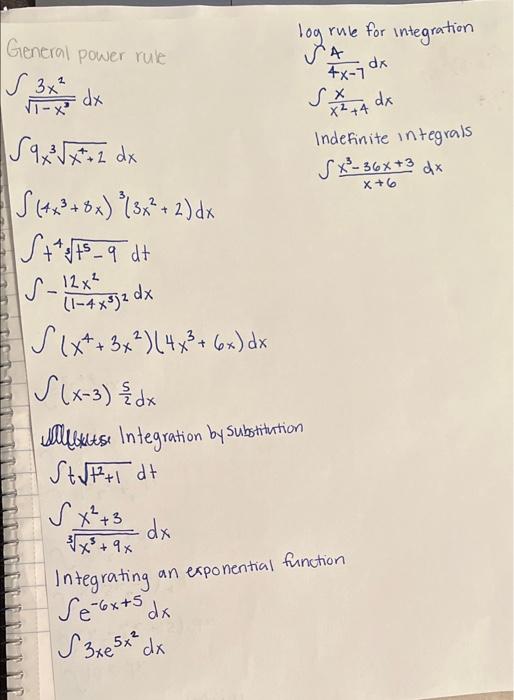 General power rule
∫ 3x²/√(1-x³) dx
∫9x³√(x⁴+2) dx
∫(4x³+8x)³(3x²+2)dx
∫t⁴ ∛(t⁵-9) dt
∫- 12x²/(1-4x³)² dx
∫(x⁴+3x²)(4x³+6x)dx
∫(x-3) 5/2 dx
Integration by substitution
∫t√(t²+1) dt
∫ (x²+3)/∛(x³+9x) dx
Integrating an exponential function
∫e^(-6x+5) dx
∫3xe^(5x²) dx
log rule for integration
∫ 4/(4x-7) dx
∫ x/(x²+4) dx
Indefinite integrals
∫ (x³-36x+3)/(x+6) dx